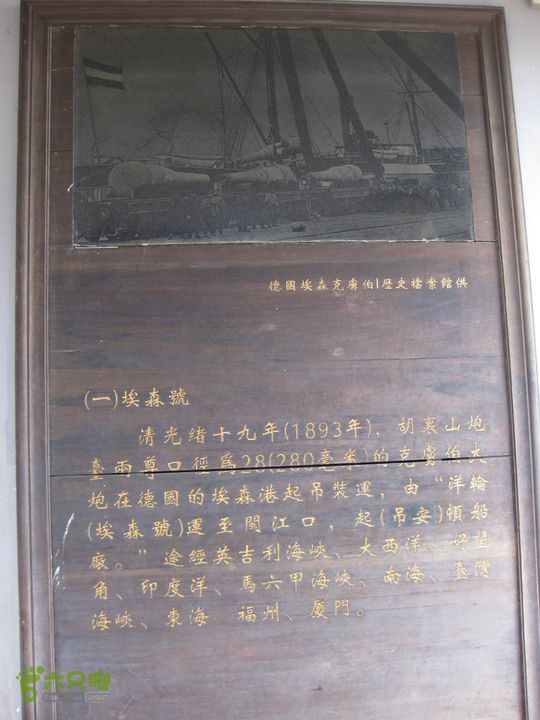 德國埃森克虜伯|歷史檔案館供
(一)埃森號
清光緒十九年(1893年)，胡裏山炮
臺兩尊口徑爲28(280毫米)的克虜伯大
炮在德國的埃森港起吊裝運，由“洋輪
(埃森號)運至閩江口，起(吊安)頓船
廠。”途經英吉利海峽、大西洋、好望
角、印度洋、馬六甲海峽、南海、臺灣
海峽、東海 福州、厦門。
六只脚